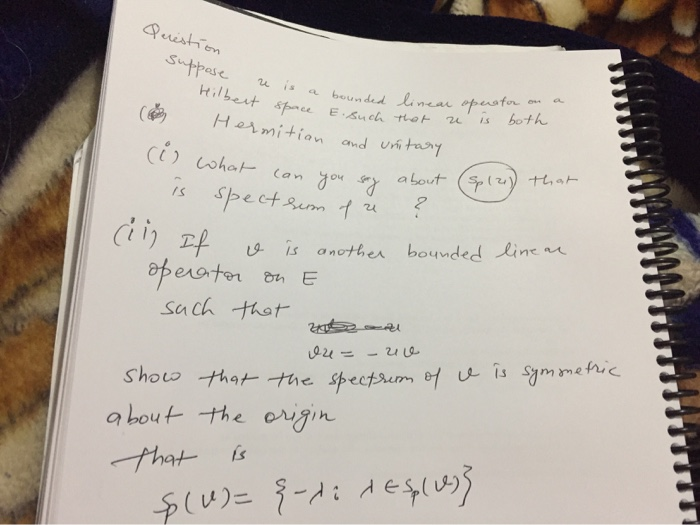 Question
Suppose u is a bounded linear operator on a
Hilbert space E. such that u is both
Hermitian and Unitary
(i) what can you say about Sp(u) that
is spectrum of u ?
(ii) If v is another bounded linear
operator on E
such that
vu = -uv
show that the spectrum of v is symmetric
about the origin
that is
Sp(v) = {-λ : λ ∈ Sp(v)}